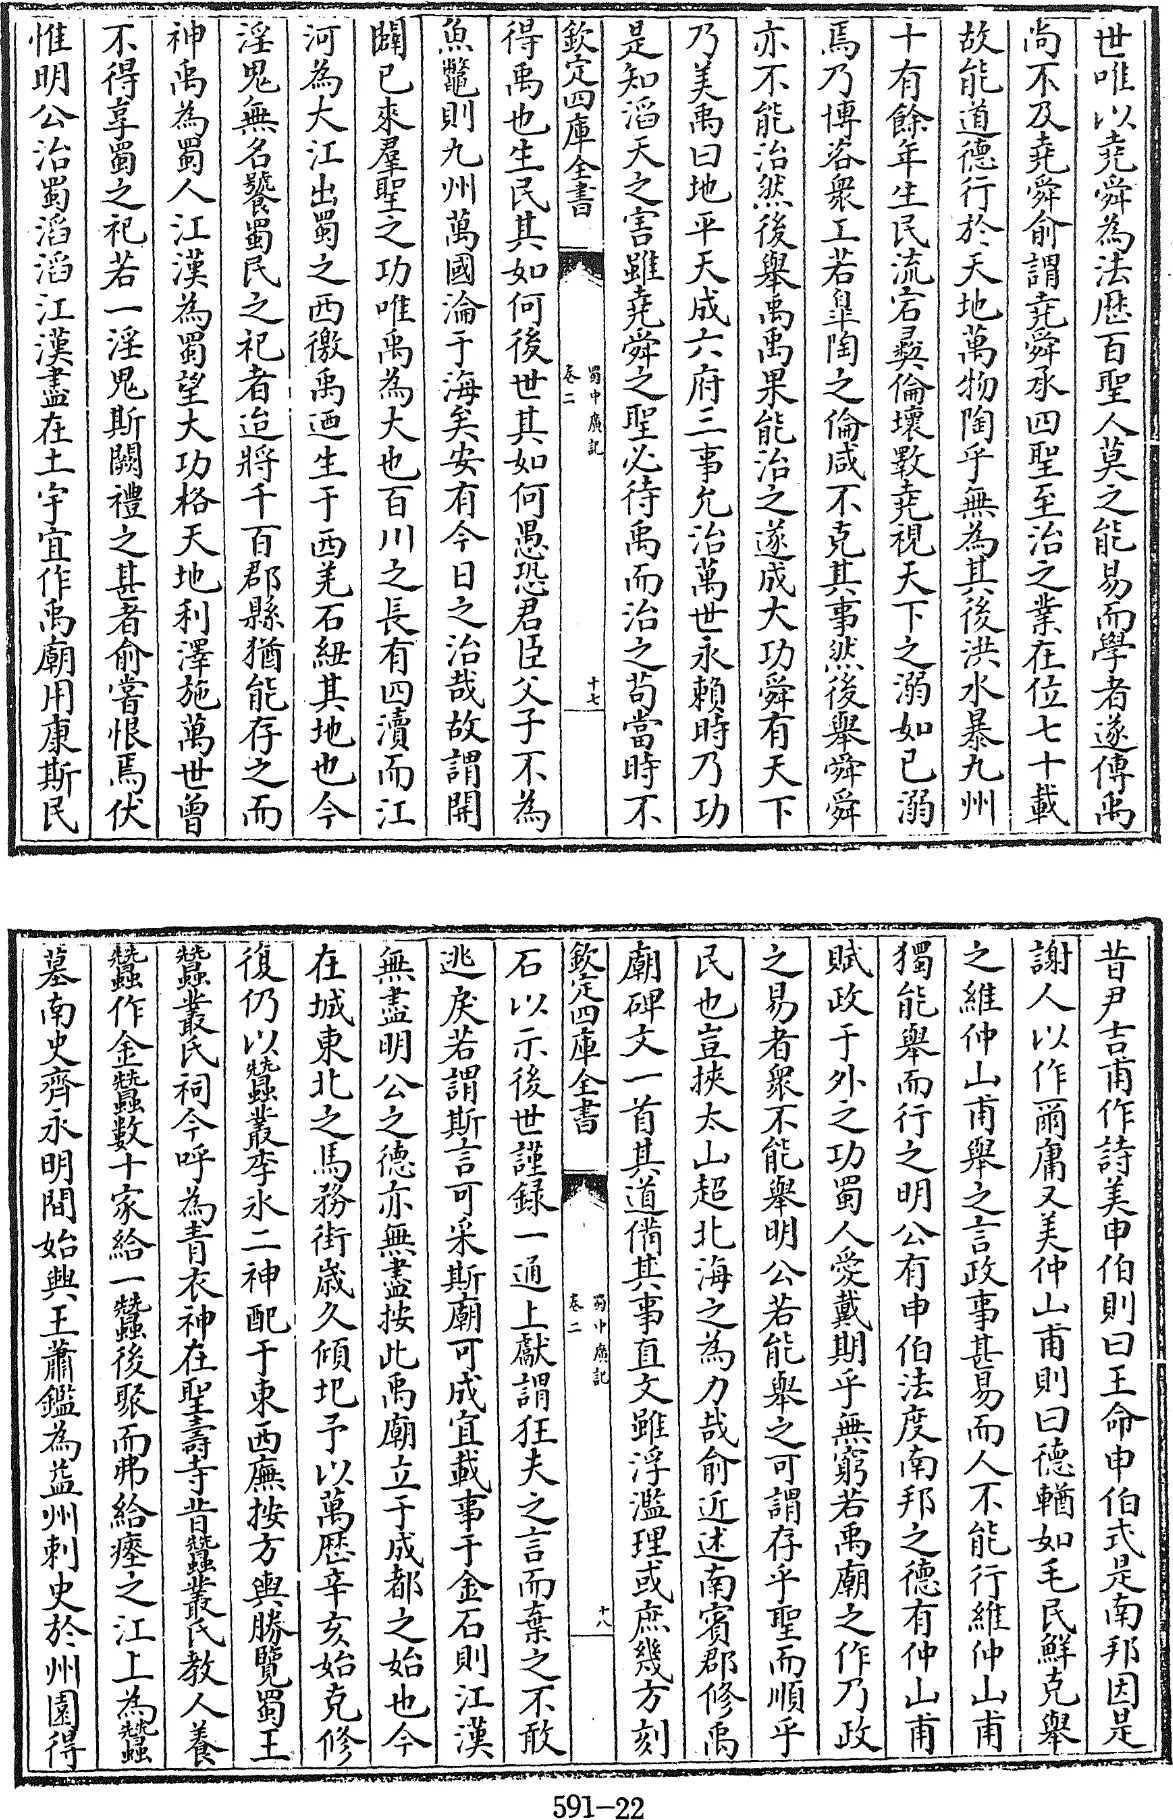 世唯以堯舜為法歴百聖人莫之能易而學者遂傳禹
尚不及堯舜俞謂堯舜承四聖至治之業在位七十載
故能道德行於天地萬物陶乎無為其後洪水暴九州
十有餘年生民流宕彛倫壞斁堯視天下之溺如已溺
焉乃博咨衆工若臯陶之倫咸不克其事然後舉舜舜
亦不能治然後舉禹禹果能治之遂成大功舜有天下
乃美禹曰地平天成六府三事允治萬世永賴時乃功
是知滔天之害雖堯舜之聖必待禹而治之茍當時不
欽定四庫全書
蜀中廣記
卷二
十七
得禹也生民其如何後世其如何愚恐君臣父子不為
魚鼈則九州萬國淪于海矣安有今日之治哉故謂開
闢已來羣聖之功唯禹為大也百川之長有四瀆而江
河為大江出蜀之西徼禹迺生于西羌石紐其地也今
淫鬼無名饕蜀民之祀者迨將千百郡縣猶能存之而
神禹為蜀人江漢為蜀望大功格天地利澤施萬世曾
不得享蜀之祀若一淫鬼斯闕禮之甚者俞嘗恨焉伏
惟明公治蜀滔滔江漢盡在土宇宜作禹廟用康斯民
昔尹吉甫作詩美申伯則曰王命申伯式是南邦因是
謝人以作爾庸又美仲山甫則曰德輶如毛民鮮克舉
之維仲山甫舉之言政事甚易而人不能行維仲山甫
獨能舉而行之明公有申伯法度南邦之德有仲山甫
賦政于外之功蜀人愛戴期乎無窮若禹廟之作乃政
之易者衆不能舉明公若能舉之可謂存乎聖而順乎
民也豈挾太山超北海之為力哉俞近述南賓郡修禹
廟碑文一首其道備其事直文雖浮濫理或庶幾方刻
欽定四庫全書
蜀中廣記
卷二
十八
石以示後世謹録一通上獻謂狂夫之言而棄之不敢
逃戾若謂斯言可采斯廟可成宜載事于金石則江漢
無盡明公之德亦無盡按此禹廟立于成都之始也今
在城東北之馬務街歳久傾圯予以萬厯辛亥始克修
復仍以蠶叢李氷二神配于東西廡按方輿勝覽蜀王
蠶叢氏祠今呼為青衣神在聖壽寺昔蠶叢氏教人養
蠶作金蠶數十家給一蠶後聚而弗給瘞之江上為蠶
墓南史齊永明間始興王蕭鑑為益州刺史於州園得
591-22